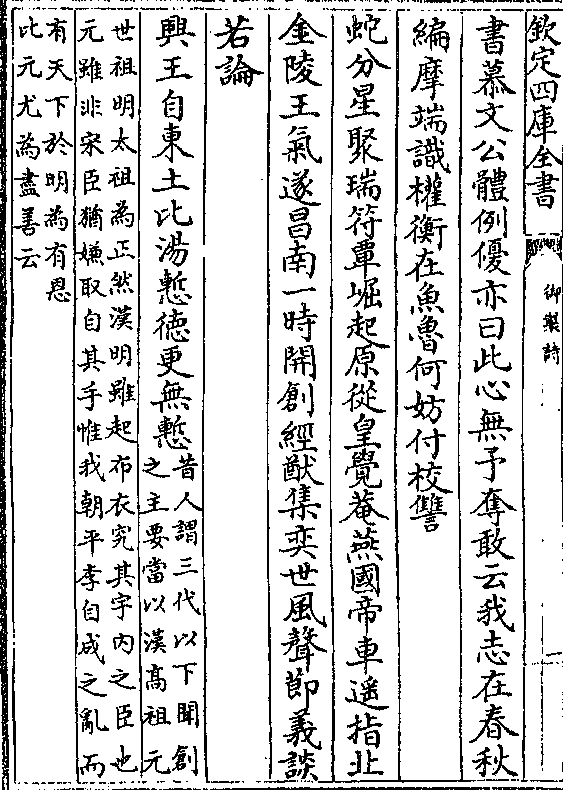 欽定四庫全書
御製詩
一
書慕文公體例優亦曰此心無予奪敢云我志在春秋
編摩端識權衡在魚魯何妨付校讐
蛇分星聚瑞符覃崛起原從皇覺菴燕國帝車遥指北
金陵王氣遂昌南一時開創經猷集奕世風聲節義談
若論
興王自東土比湯慙德更無慙
昔人謂三代以下開創
之主要當以漢高祖元
世祖明太祖為正然漢明雖起布衣究其宇内之臣也
元雖非宋臣猶嫌取自其手惟我朝平李自成之亂而
有天下於明為有恩
比元尤為盡善云